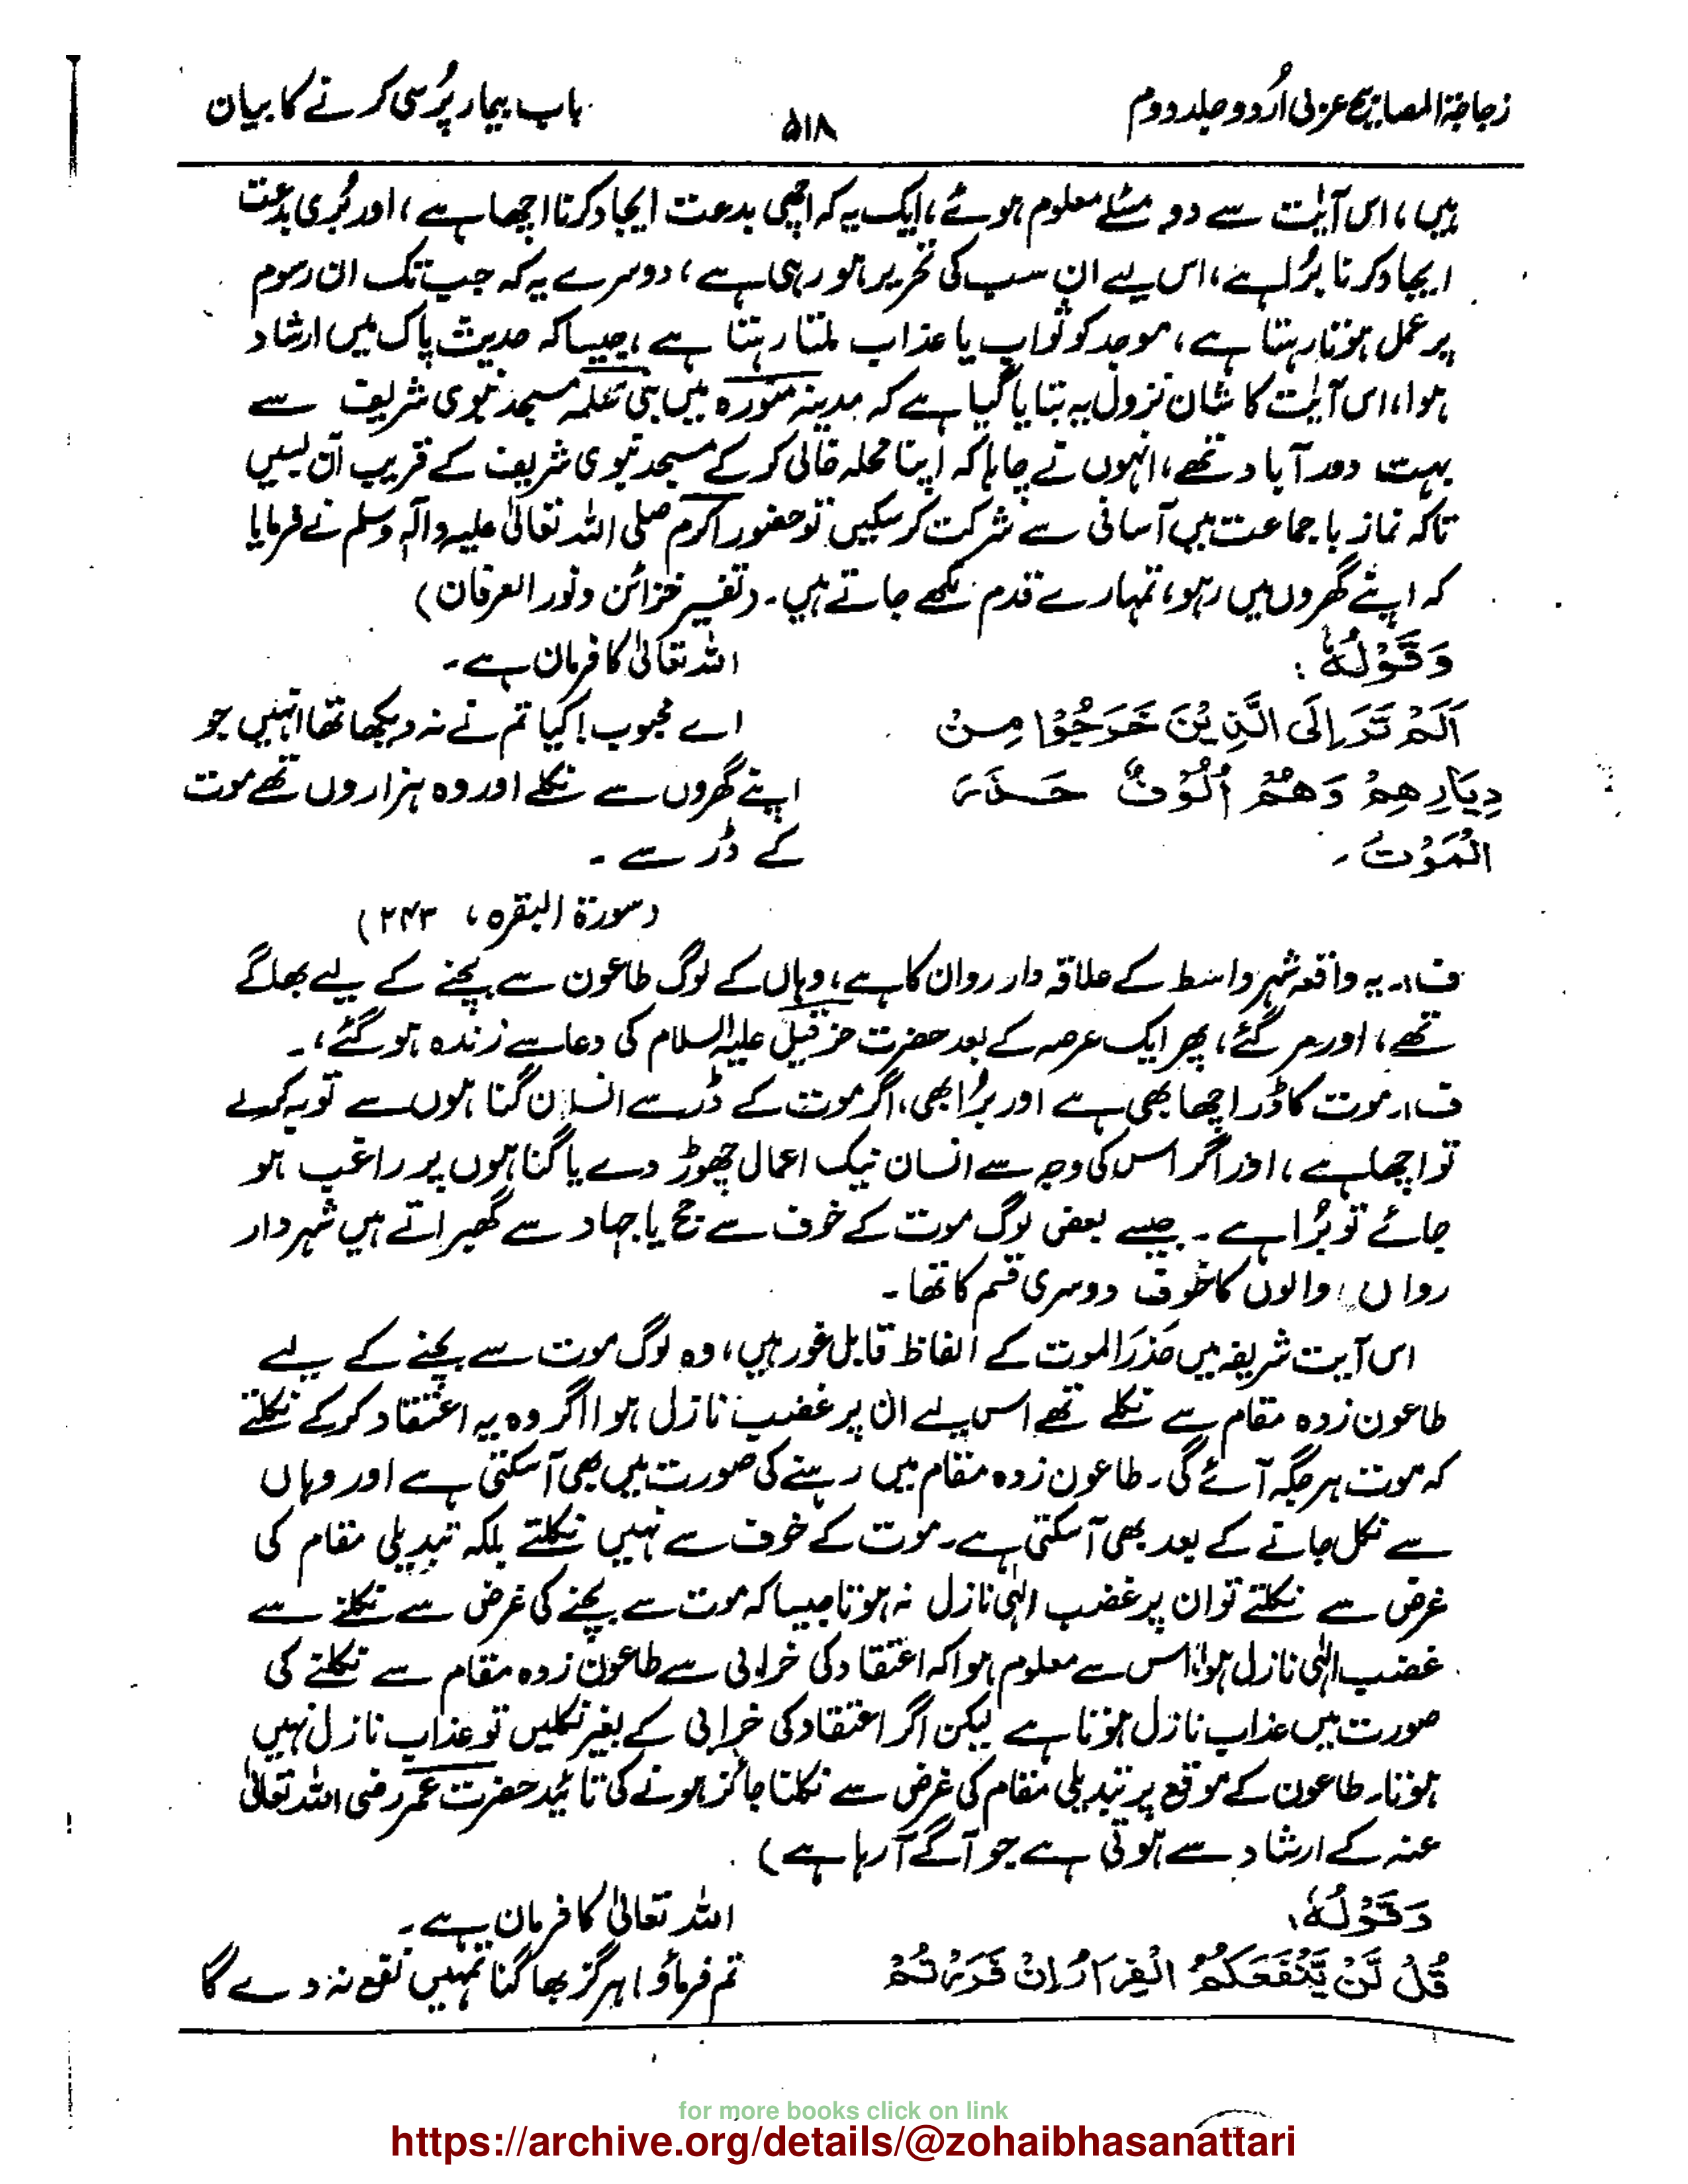 زجاجۃ المصابیح عربی اُردو جلد دوم
۵۱۸
باب بیمار پُرسی کرنے کا بیان
ہیں، اس آیٰت سے دو مسئلے معلوم ہوئے، ایک یہ کہ اچھی بدعت ایجاد کرنا اچھا ہے، اور بُری بدعت
ایجاد کرنا بُرا ہے، اس لیے ان سب کی تحریر ہو رہی ہے، دوسرے یہ کہ جب تک ان رسوم
پر عمل ہوتا رہتا ہے، موجد کو ثواب یا عذاب ملتا رہتا ہے، جیسا کہ حدیث پاک میں ارشاد
ہوا، اس آیٰت کا شان نزول یہ بتایا گیا ہے کہ مدینہ منورہ میں بنی سلمہ مسجد نبوی شریف سے
بہت دور آباد تھے، انہوں نے چاہا کہ اپنا محلہ خالی کر کے مسجد نبوی شریف کے قریب آن بسیں
تاکہ نماز با جماعت میں آسانی سے شرکت کر سکیں تو حضور اکرم صلی اللہ تعالیٰ علیہ والہٖ وسلم نے فرمایا
کہ اپنے گھروں میں رہو، تمہارے قدم لکھے جاتے ہیں۔ (تفسیر خزائن و نور العرفان)
وَقَوْلُهٗ :
اللہ تعالیٰ کا فرمان ہے۔
اَلَمْ تَرَ اِلَى الَّذِيْنَ خَرَجُوْا مِنْ
اے محبوب! کیا تم نے نہ دیکھا تھا انہیں جو
دِيَارِهِمْ وَهُمْ اُلُوْفٌ حَذَرَ
اپنے گھروں سے نکلے اور وہ ہزاروں تھے موت
الْمَوْتِ۔
کے ڈر سے ۔
(سورۃ البقرہ، ۲۴۳)
ف:۔ یہ واقعہ شہر واسط کے علاقہ دار روان کا ہے، وہاں کے لوگ طاعون سے بچنے کے لیے بھاگے
تھے، اور مر گئے، پھر ایک عرصہ کے بعد حضرت حزقیل علیہ السلام کی دعا سے زندہ ہو گئے،۔
ف:۔ موت کا ڈر اچھا بھی ہے اور برُا بھی، اگر موت کے ڈر سے انسان گناہوں سے توبہ کرلے
تو اچھا ہے، اور اگر اس کی وجہ سے انسان نیک اعمال چھوڑ دے یا گناہوں پر راغب ہو
جائے تو برُا ہے ۔ جیسے بعض لوگ موت کے خوف سے حج یا جہاد سے گھبراتے ہیں شہر دار
رواں والوں کا خوف دوسری قسم کا تھا ۔
اس آیت شریفہ میں حَذَرَ الموت کے الفاظ قابل غور ہیں، وہ لوگ موت سے بچنے کے لیے
طاعون زدہ مقام سے نکلے تھے اس لیے ان پر غضب نازل ہوا اگر وہ یہ اعتقاد کر کے نکلتے
کہ موت ہر جگہ آئے گی۔ طاعون زدہ مقام میں رہنے کی صورت میں بھی آسکتی ہے اور وہاں
سے نکل جانے کے بعد بھی آسکتی ہے۔ موت کے خوف سے نہیں نکلتے بلکہ تبدیلی مقام کی
غرض سے نکلتے تو ان پر غضب الٰہی نازل نہ ہوتا جیسا کہ موت سے بچنے کی غرض سے نکلنے سے
غضب الٰہی نازل ہوا، اس سے معلوم ہوا کہ اعتقاد کی خرابی سے طاعون زدہ مقام سے نکلنے کی
صورت میں عذاب نازل ہوتا ہے لیکن اگر اعتقاد کی خرابی کے بغیر نکلیں تو عذاب نازل نہیں
ہوتا۔ طاعون کے موقع پر تبدیلی مقام کی غرض سے نکلنا جائز ہونے کی تائید حضرت عمر رضی اللہ تعالیٰ
عنہ کے ارشاد سے ہوتی ہے جو آگے آرہا ہے)
وَقَوْلُهٗ،
اللہ تعالیٰ کا فرمان ہے۔
قُلْ لَّنْ يَّنْفَعَكُمُ الْفِرَارُ اِنْ فَرَرْتُمْ
تم فرماؤ! ہرگز بھاگنا تمہیں نفع نہ دے گا
for more books click on link
https://archive.org/details/@zohaibhasanattari